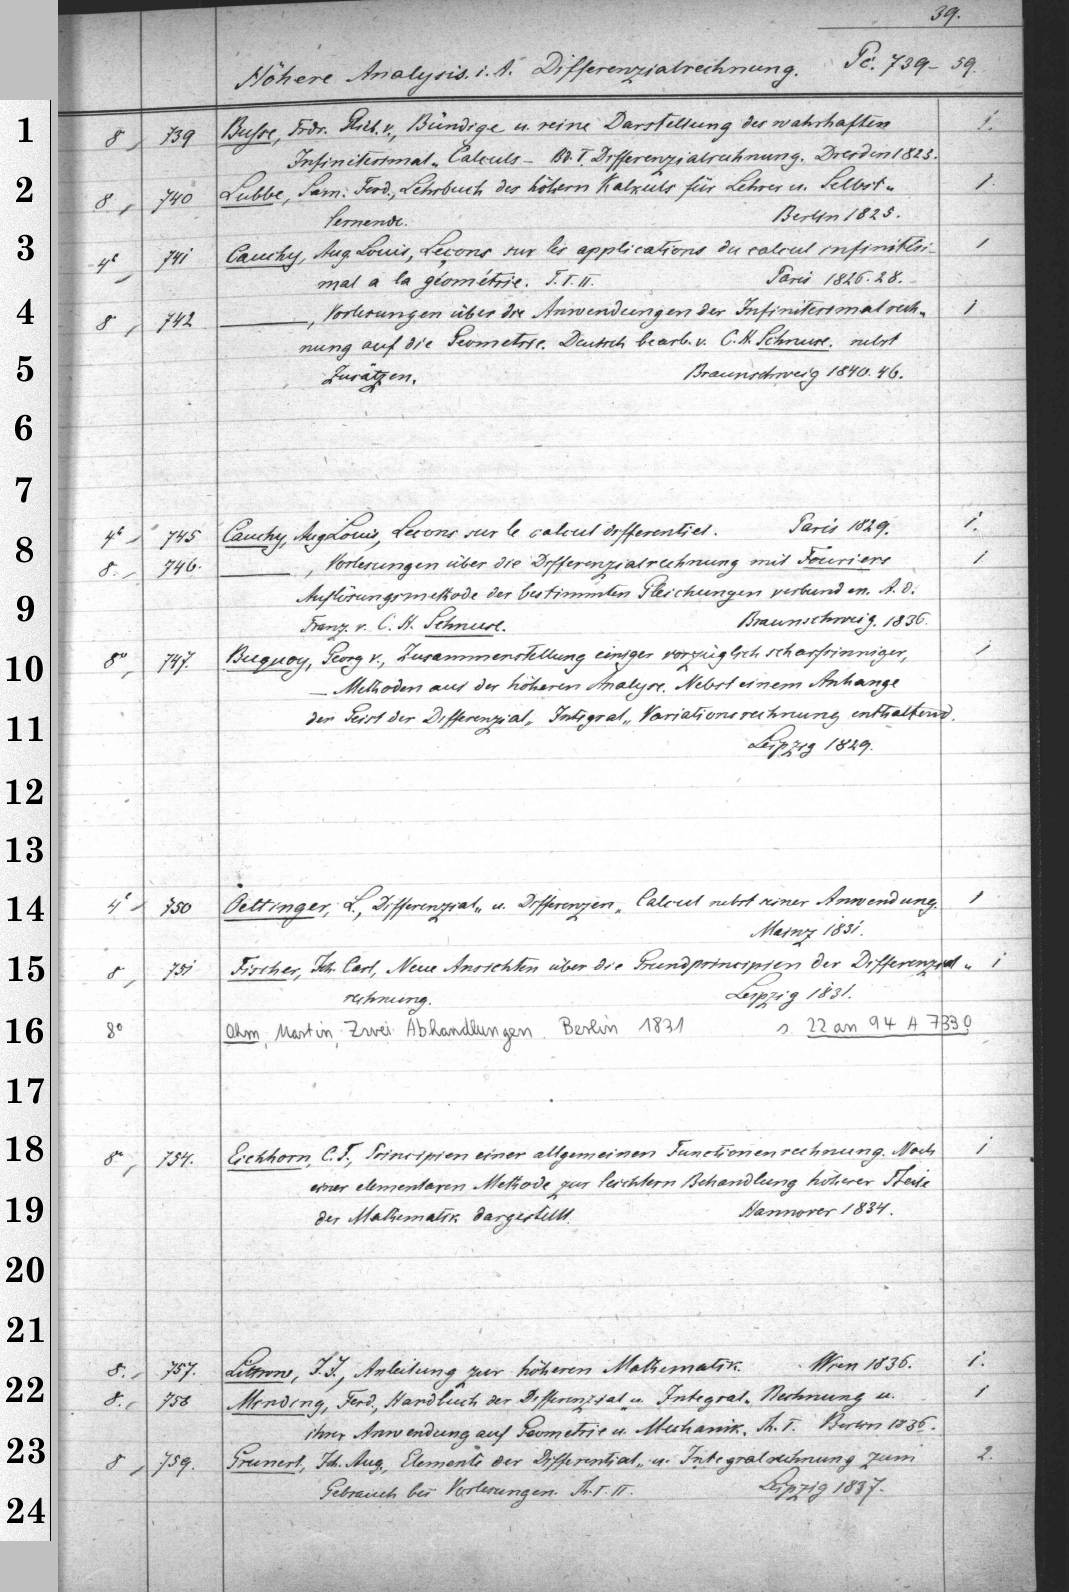 39.
Höhere Analysis. i. A. Differenzialrechnung. Pc. 739-59.
1 8, 739 Busse, Frdr. Glieb. v., Bündige u. reine Darstellung des wahrhaften 1.
Infinitesimal-Calculs - Bd. I. Differenzialrechnung. Dresden 1825.
2 8, 740 Lubbe, Sam. Ferd., Lehrbuch des höhern Kalkuls für Lehrer u. Selbst- 1
lernende. Berlin 1825.
3 4°, 741 Cauchy, Aug. Louis, Leçons sur les applications du calcul infinitési- 1
mal a la géométrie. T. I. II. Paris 1826. 28.
4 8, 742 ———, Vorlesungen über die Anwendungen der Infinitesimalrech- 1
nung auf die Geometrie. Deutsch bearb. v. C. H. Schnuse. nebst
5 Zusätzen. Braunschweig 1840. 46.
6
7
4°, 745 Cauchy, Aug. Louis, Leçons sur le calcul differentiel. Paris 1829. 1.
8 8., 746. ———, Vorlesungen über die Differenzialrechnung mit Fouriers 1
9 Auflösungsmethode der bestimmten Gleichungen verbunden. A. d.
Franz. v. C. H. Schnuse. Braunschweig. 1836.
10 8°, 747. Buquoy, Georg v., Zusammenstellung einiger vorzüglich scharfsinniger, 1
Methoden aus der höheren Analyse. Nebst einem Anhange
11 den Geist der Differenzial-, Integral-, Variationsrechnung enthaltend.
Leipzig 1829.
12
13
14 4°, 750 Oettinger, L., Differenzial- u. Differenzen-Calcul nebst einer Anwendung. 1
Mainz 1831.
15 8, 751 Fischer, Joh. Carl, Neue Ansichten über die Grundprincipien der Differenzial- 1
rechnung. Leipzig 1831.
16 8° Ohm, Martin, Zwei Abhandlungen. Berlin 1831 s. 22 an 94 A 7330
17
18 8°, 754. Eichhorn, C. F., Principien einer allgemeinen Functionenrechnung. Nach 1
einer elementaren Methode zur leichtern Behandlung höherer Theile
19 der Mathematik dargestellt. Hannover 1834.
20
21
8., 757. Littrow, J. J., Anleitung zur höheren Mathematik. Wien 1836. 1.
22 8., 758 Minding, Ferd., Handbuch der Differenzial- u. Integral-Rechnung u. 1
ihrer Anwendung auf Geometrie u. Mechanik. Th. I. Berlin 1836.
23 8, 759. Grunert, Joh. Aug., Elemente der Differential- u. Integralrechnung zum 2.
24 Gebrauch bei Vorlesungen. Th. I. II. Leipzig 1837.